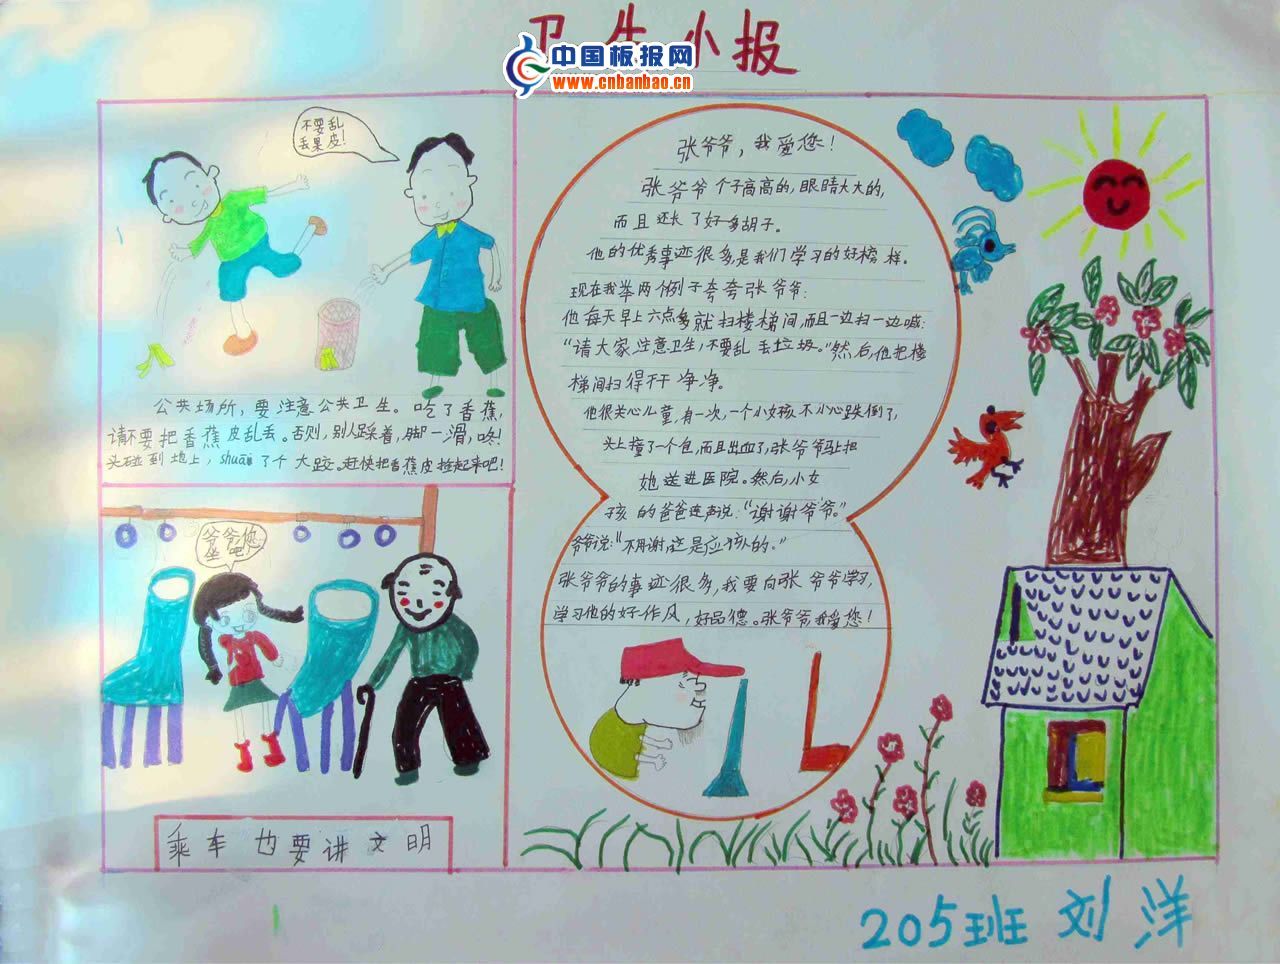 卫生小报
中国板报网
www.cnbanbao.cn
不要乱
丢果皮!
公共场所，要注意公共卫生。吃了香蕉，
请不要把香蕉皮乱丢。否则，别人踩着，脚一滑，咚!
头碰到地上，shuāi了个大跤。赶快把香蕉皮捡起来吧!
爷爷您
坐吧
乘车也要讲文明
张爷爷，我爱您!
张爷爷个子高高的，眼睛大大的，
而且还长了好多胡子。
他的优秀事迹很多是我们学习的好榜样。
现在我举两个例子夸夸张爷爷:
他每天早上六点多就扫楼梯间，而且一边扫一边喊:
“请大家注意卫生，不要乱丢垃圾。”然后，他把楼
梯间扫得干干净净。
他很关心儿童，有一次，一个小女孩不小心跌倒了，
头上撞了一个包，而且出血了，张爷爷马上把
她送进医院。然后，小女
孩的爸爸连声说:“谢谢爷爷。”
爷爷说:“不用谢，这是应该的。”
张爷爷的事迹很多，我要向张爷爷学习，
学习他的好作风，好品德。张爷爷我爱您!
205班 刘洋